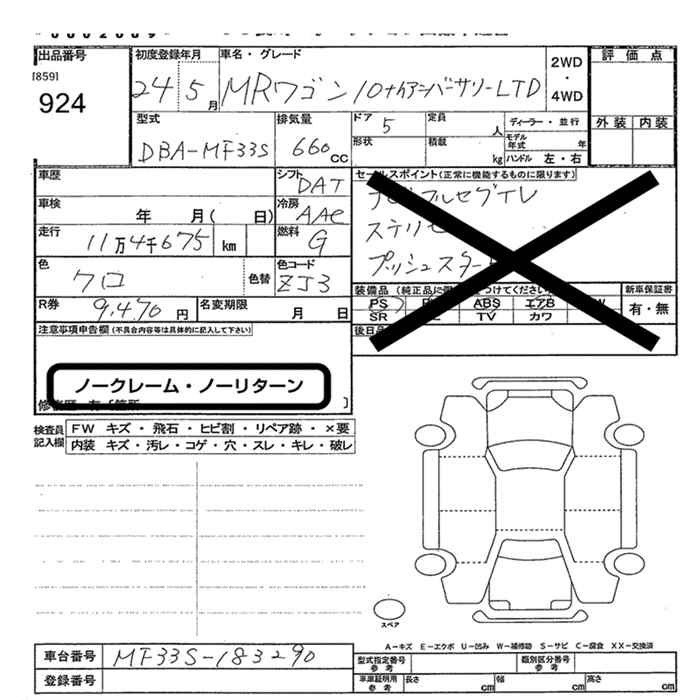 出品番号 初度登録年月 車名・グレード 2WD・4WD 評価点
[859]
924
24 5月 MRワゴン 10thアニバーサリーLTD
外装 内装
型式 排気量 ドア 5 定員 人 ディーラー・並行
DBA-MF33S 660 CC 形状 積載 kg モデル年式 年
ハンドル 左・右
車歴 シフト DAT セールスポイント(正常に機能するものに限ります)
車検 年 月( 日) 冷房 AAC
走行 11万4千675 km 燃料 G
プッシュスタート
色 クロ 色替 色コード ZJ3
装備品 新車保証書
R券 9,470 円 名変期限 月 日 PS ABS エアB 有・無
SR TV カワ
注意事項申告欄(不具合内容等は具体的に記入して下さい) 後日
ノークレーム・ノーリターン
検査員記入欄 FW キズ・飛石・ヒビ割・リペア跡・×要
内装 キズ・汚レ・コゲ・穴・スレ・キレ・破レ
スペア
A-キズ E-エクボ U-凹み W-補修跡 S-サビ C-腐食 XX-交換済
車台番号 MF33S-183290 型式指定番号 参考 類別区分番号 参考
登録番号 車庫証明用 参考 長さ cm 幅 cm 高さ cm